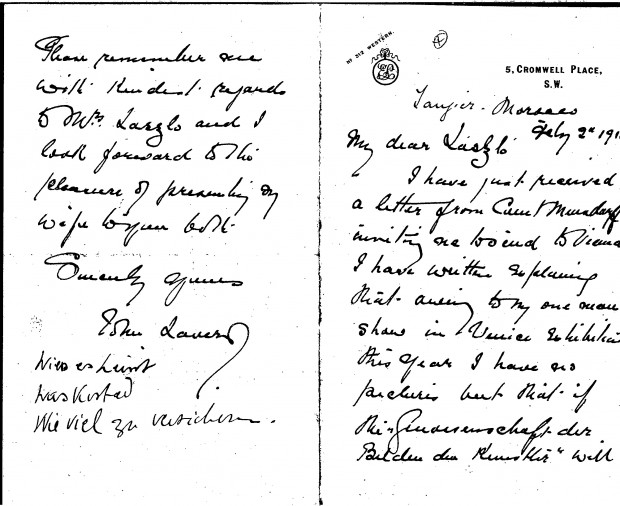 Please remember me
with kindest regards
to Mrs Laszlo and I
look forward to the
pleasure of presenting my
wife to you both
Sincerely yours
John Lavery
was kostet
Wie viel zu versichern.
Nº 312 WESTERN.
5, CROMWELL PLACE,
S.W.
Tangier - Morocco
Feby 2d 191
My dear László
I have just received
a letter from Count
inviting me to send to Vienna
I have written explaining
that owing to my one man
show in Venice Exhibition
this year I have no
pictures but that if
the "Genossenschaft der
Bildenden Künstler" will